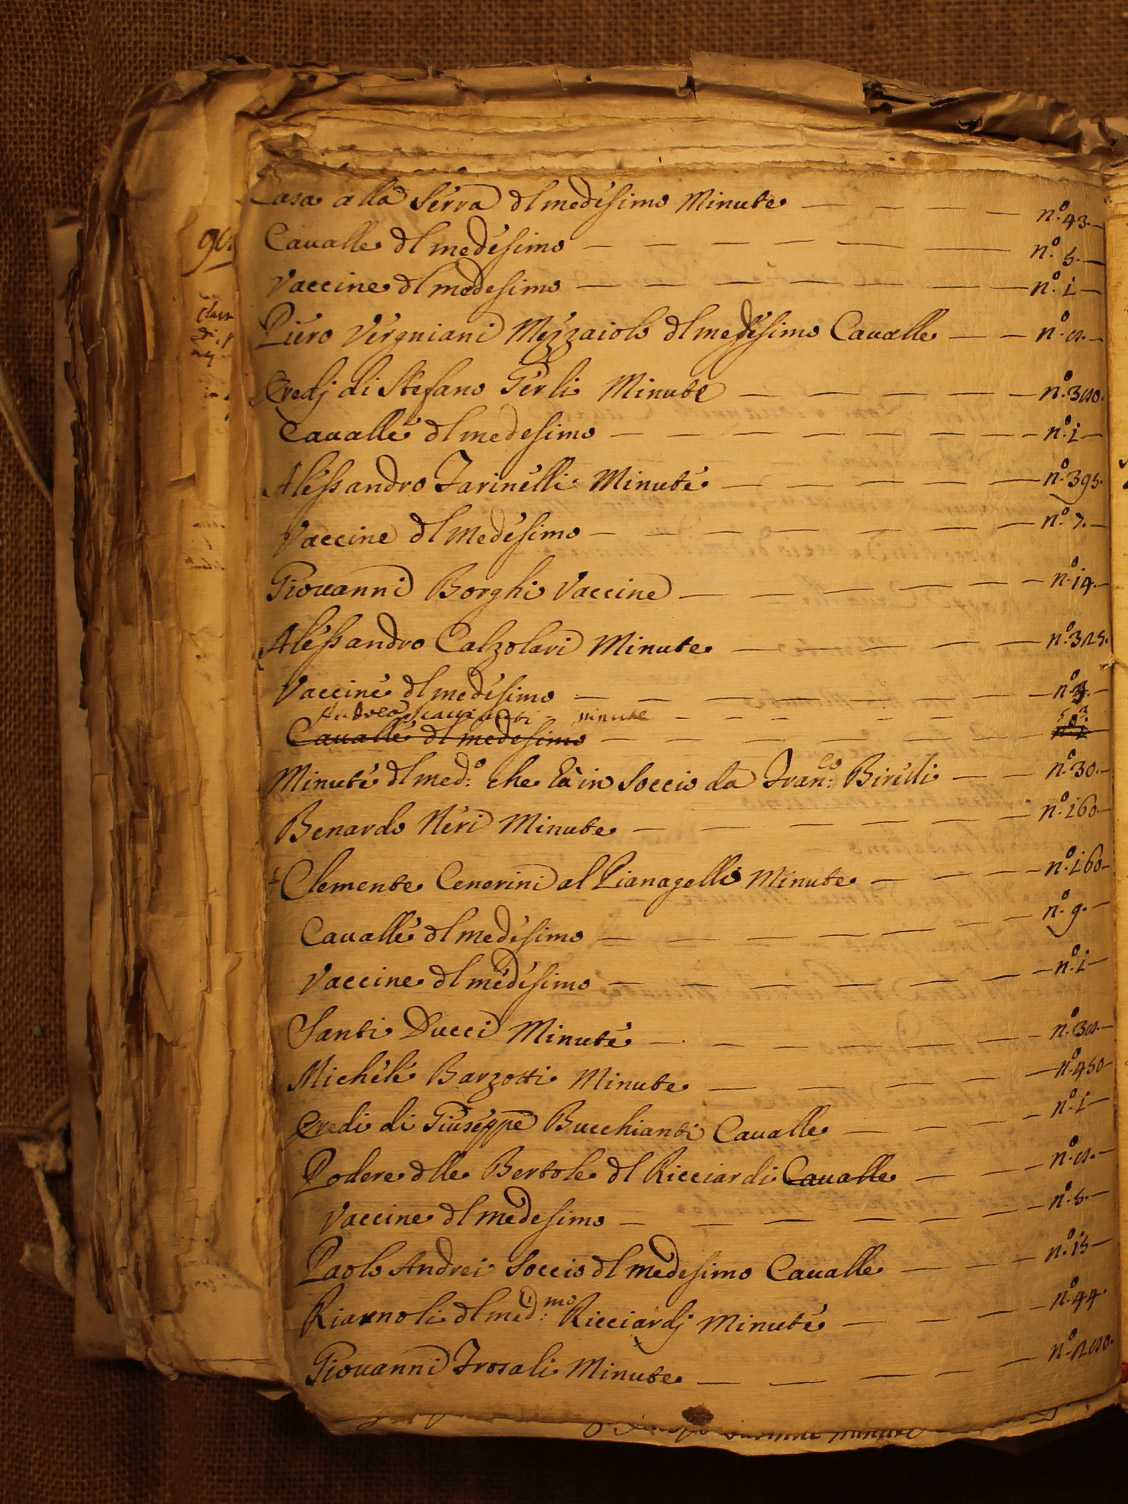 Casa alla Serra dl medesimo Minute — n.º 43.
Cavalle dl medesimo — n.º 5.
Vaccine dl medesimo — n.º 1
Piero Vergniani Mezzaiolo dl medesimo Cavalle — n.º 2.
Eredj di Stefano Gerli Minute — n.º 300.
Cavalle dl medesimo — n.º 1
Alessandro Farinelli Minute — n.º 395.
Vaccine dl Medesimo — n.º 7.
Giovanni Borghi Vaccine — n.º 14.
Alessandro Calzolari Minute — n.º 325.
Vaccine dl medesimo — n.º 3.
Andrea minute
Cavalle dl medesimo
Minute dl med.º che tà in Soccio da Fran.co Birelli — n.º 30.
Benardo Neri Minute — n.º 160
Clemente Cenerini al Pianagelli Minute — n.º 160
Cavalle dl medesimo — n.º 9.
Vaccine dl medesimo — n.º 1
Santi Ducci Minute — n.º 30
Michele Barzotti Minute — n.º 450
Eredi di Giuseppe Bucchianti Cavalle — n.º 1
Podere dlle Bertole dl Ricciardi Cavalle — n.º 2.
Vaccine dl medesimo — n.º 5.
Paolo Andrei Soccio dl medesimo Cavalle — n.º 15
dl med.mo Ricciardj Minute — n.º 44.
Giovanni Frosali Minute — n.º 200.
minute